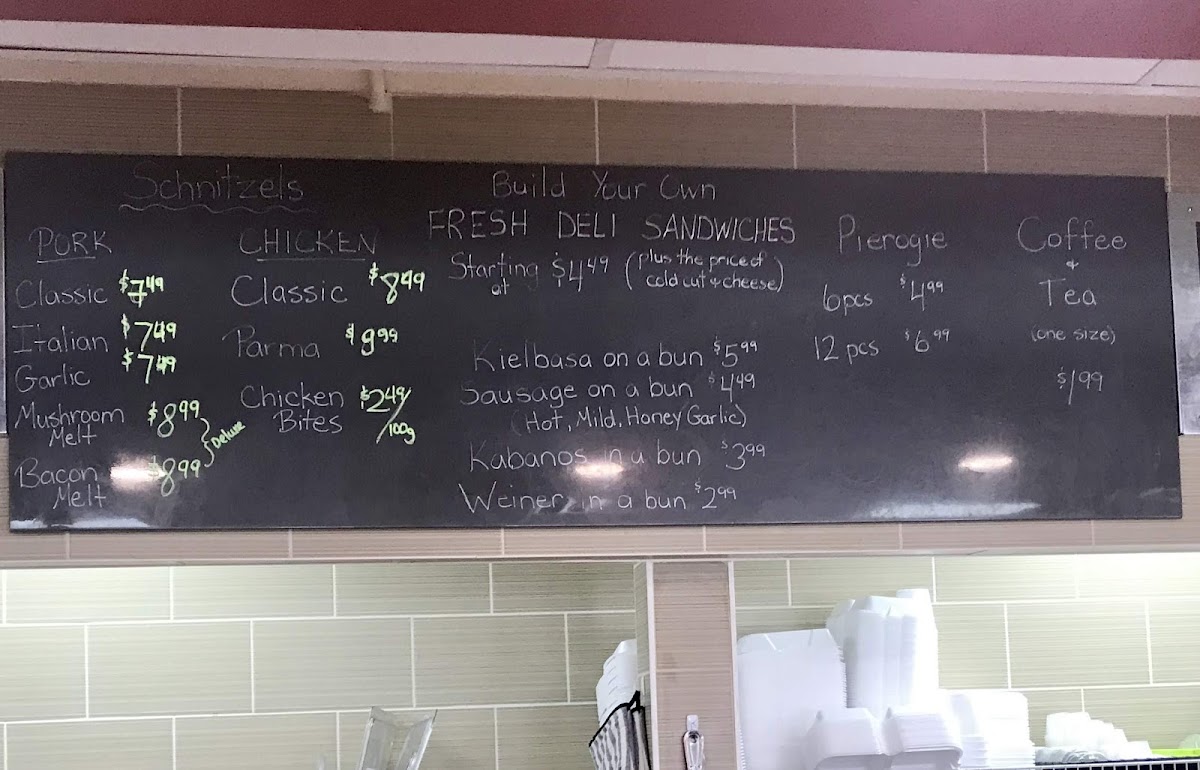 Schnitzels
PORK
Classic $7.49
Italian $7.49
Garlic $7.49
Mushroom Melt $8.99
Bacon Melt $8.99
Deluxe
CHICKEN
Classic $8.49
Parma $9.99
Chicken Bites $2.49/100g
Build Your Own
FRESH DELI SANDWICHES
Starting at $4.49 (plus the price of
cold cut & cheese)
Kielbasa on a bun $5.99
Sausage on a bun $4.49
(Hot, Mild, Honey Garlic)
Kabanos in a bun $3.99
Weiner in a bun $2.99
Pierogie
6pcs $4.99
12 pcs $6.99
Coffee
&
Tea
(one size)
$1.99